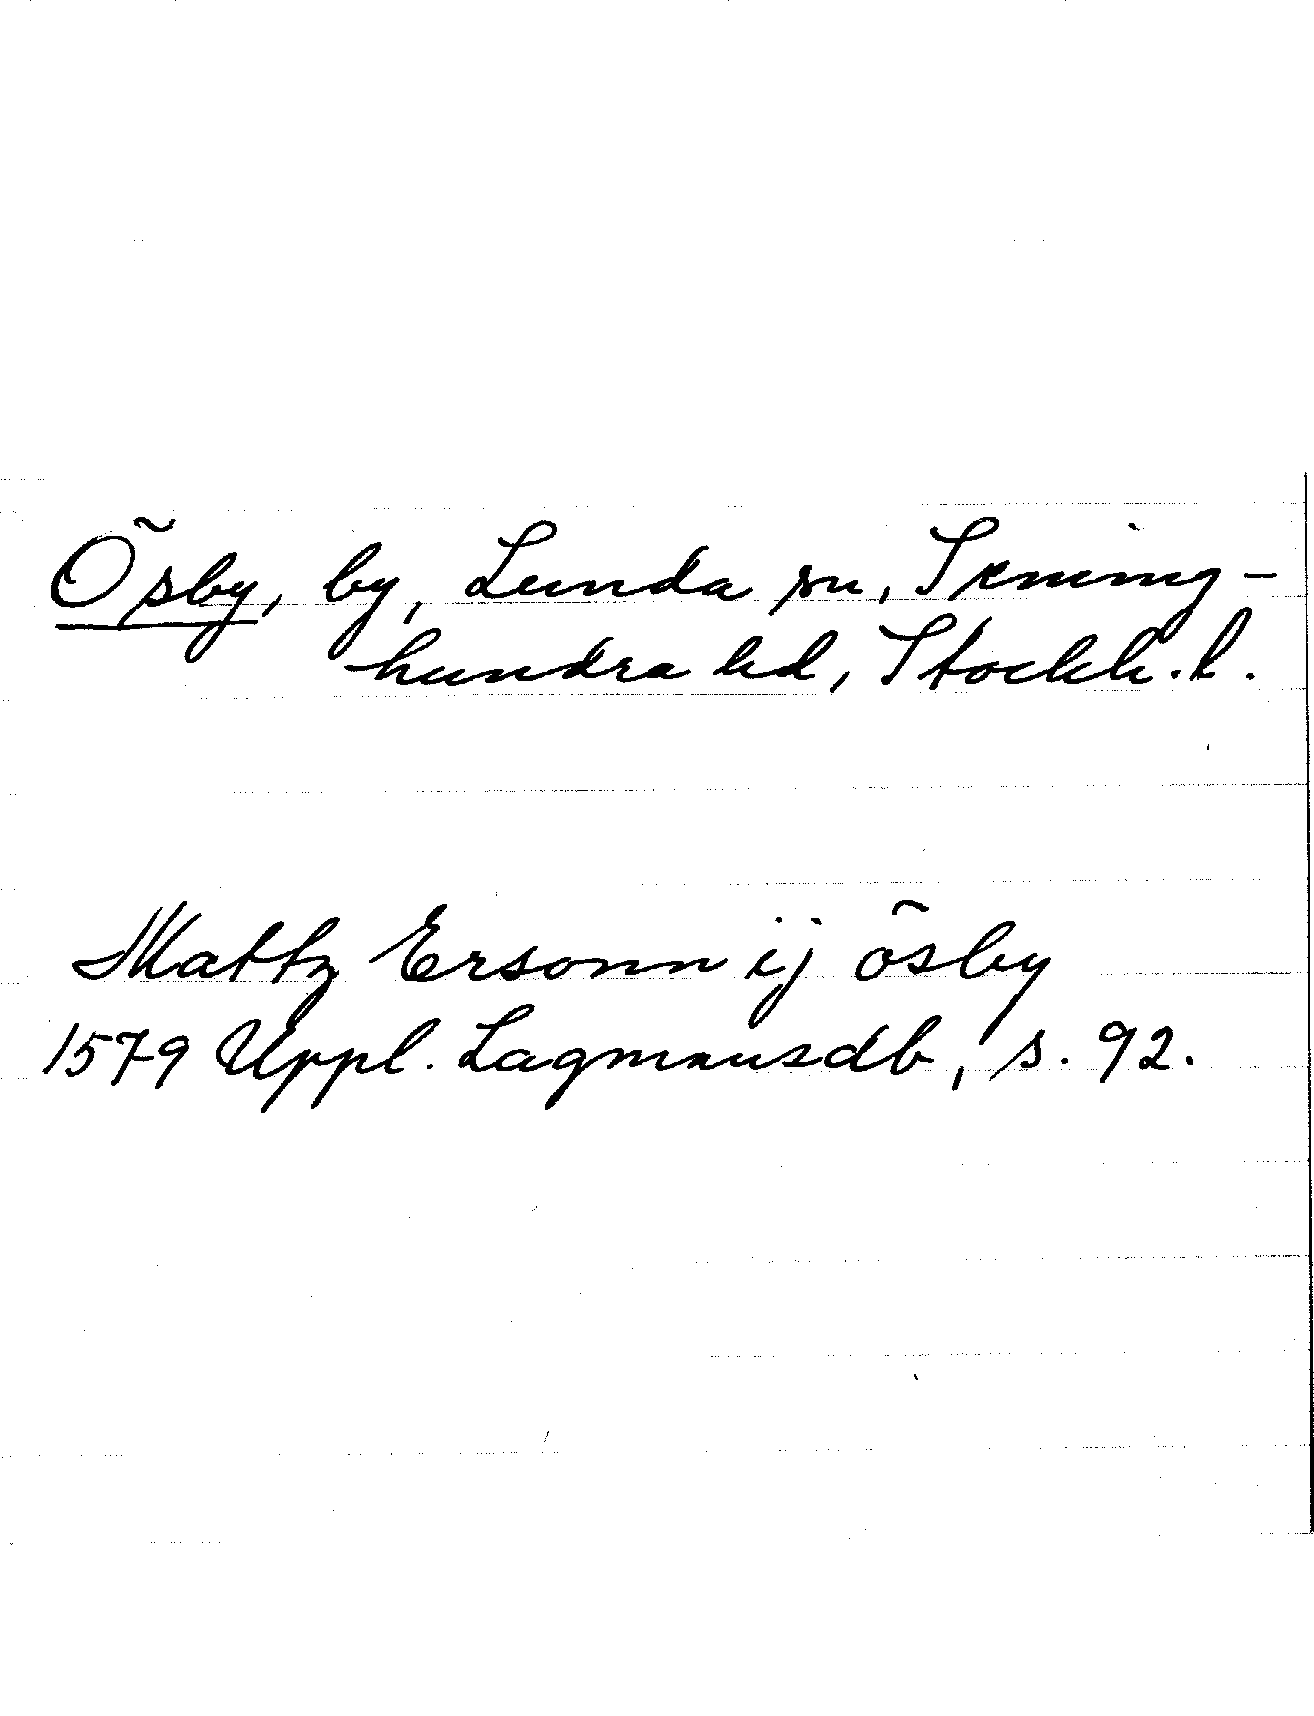 Ösby, by, Lunda sn, Skening-
hundra hd, Stockh. l.
Mattz Ersonn ij ösby
1579 Uppl. Lagmansdb, s. 92.